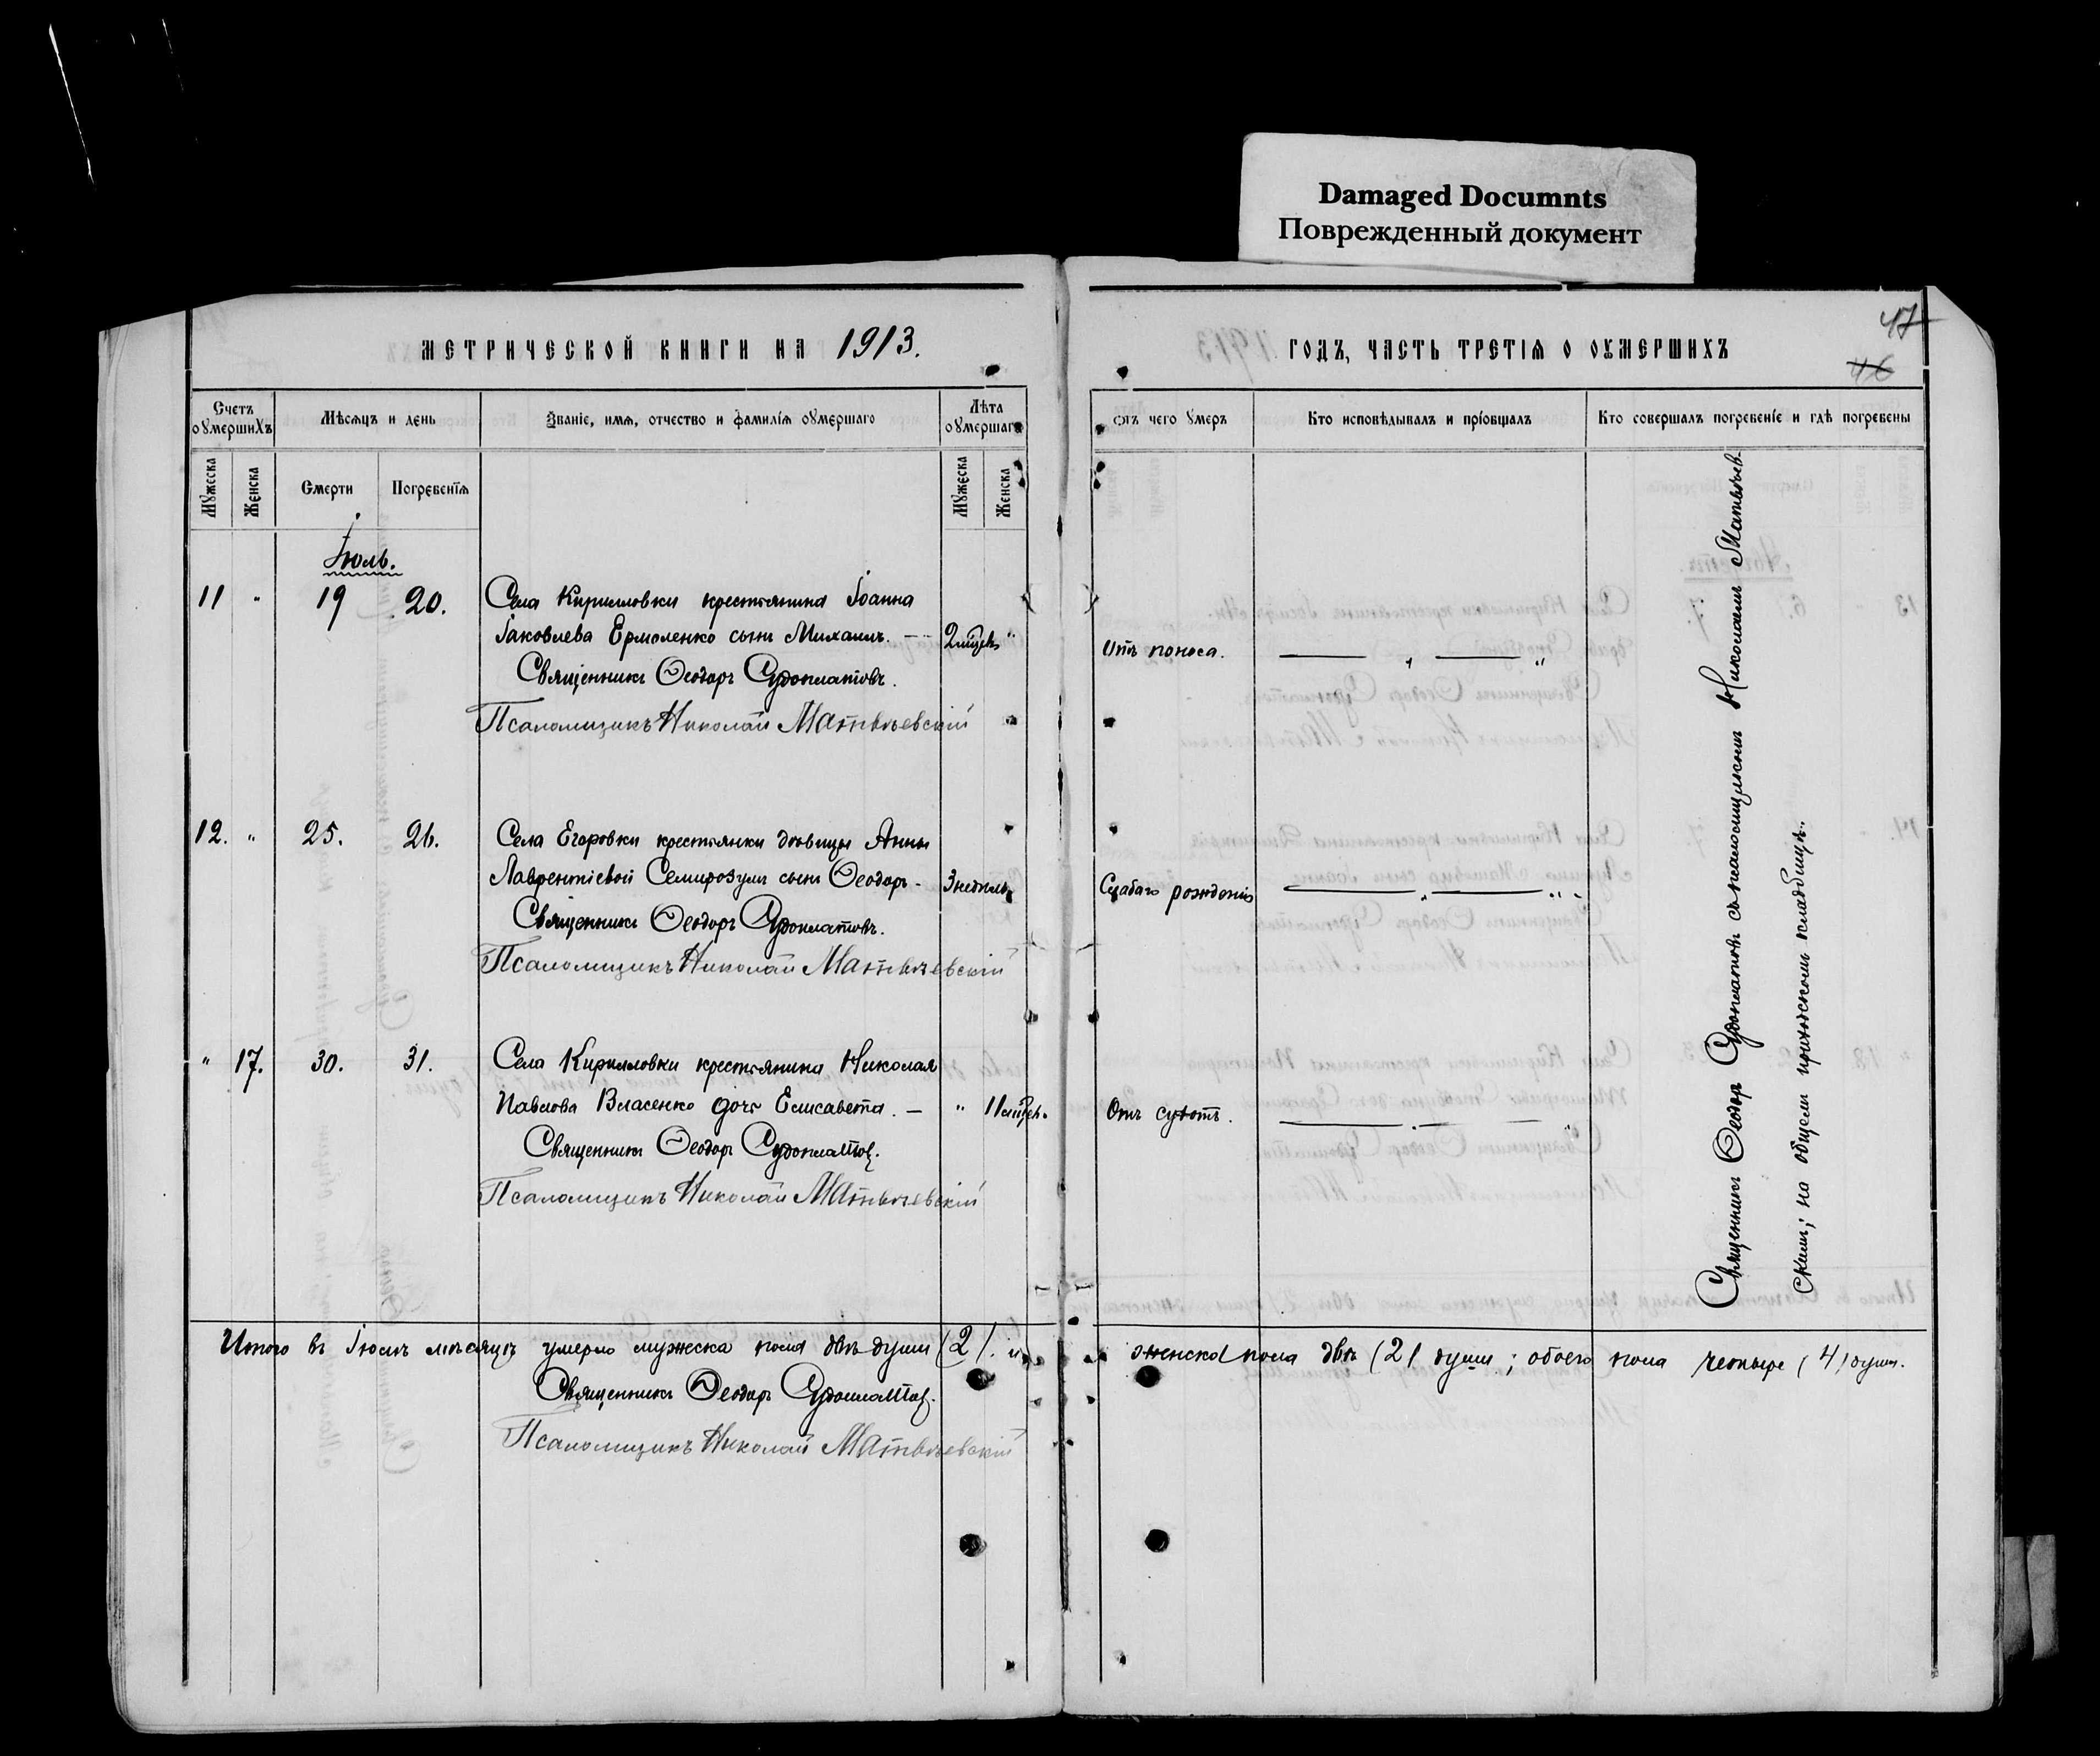 Damaged Documnts
Поврежденный документ
МЕТРИЧЕСКОЙ КНИГИ НА 1913.
ГОДЪ, ЧАСТЬ ТРЕТІЯ О ОУМЕРШИХЪ
47
46
Счетъ оумершихъ
Мѣсяцъ и день
Званіе, имя, отчество и фамилія оумершаго
Лѣта оумершаго
Отъ чего умеръ
Кто исповѣдывалъ и пріобщалъ
Кто совершалъ погребеніе и гдѣ погребены
Мужеска
Женска
Смерти
Погребенія
Мужеска
Женска
Іюль.
11 " 19 20. Села Кирилловки крестьянина Іоанна
Іаковлева Ермоленко сынъ Михаилъ. — 2 мѣсяц. " Отъ поноса. — " — "
Священникъ Ѳеодоръ Судоплатовъ.
Псаломщикъ Николай Матвѣевскій
12. " 25. 26. Села Егоровки крестьянки дѣвицы Анны
Лаврентіевой Семирозумъ сынъ Ѳеодоръ - 3 недѣль Слабаго рожденія — " — "
Священникъ Ѳеодоръ Судоплатовъ.
Псаломщикъ Николай Матвѣевскій
" 17. 30. 31. Села Кирилловки крестьянина Николая
Павлова Власенко дочь Елисавета. — " 11 мѣсяц. Отъ сухотъ. — " — "
Священникъ Ѳеодоръ Судоплатовъ.
Псаломщикъ Николай Матвѣевскій
Священникъ Ѳеодоръ Судоплатовъ съ псаломщикомъ Николаемъ Матвѣев-
скимъ; на общемъ приходскомъ кладбищѣ.
Итого въ Іюлѣ мѣсяцѣ умерло мужеска пола двѣ души (2). и женска пола двѣ (2) души; обоего пола четыре (4) души.
Священникъ Ѳеодоръ Судоплатовъ.
Псаломщикъ Николай Матвѣевскій